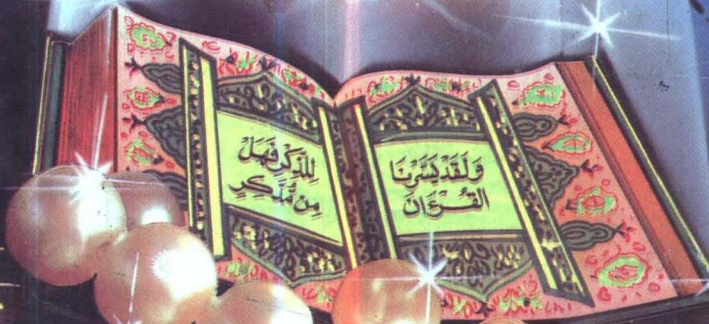 وَلَقَدْ يَسَّرْنَا
القُرْآنَ
لِلذِّكْرِ فَهَلْ
مِن مُّدَّكِرٍ